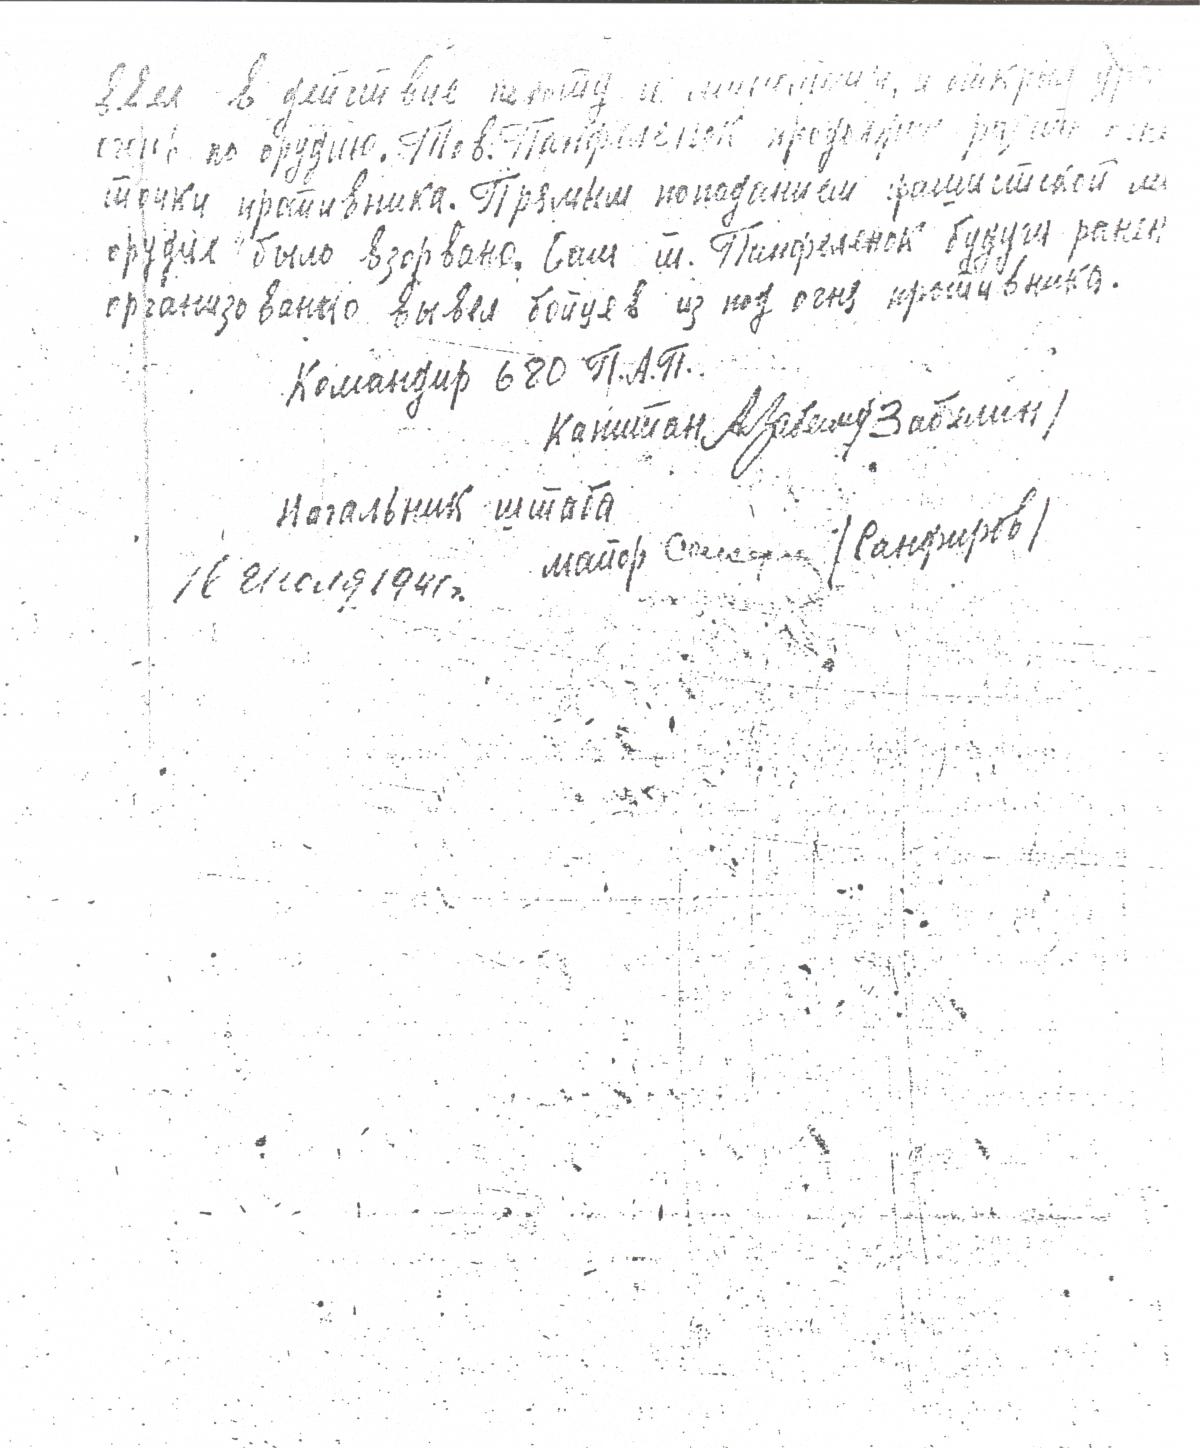 ввел в действие пехоту и минометы, и открыл
огнь по орудию. Тов. Панфеленок продолжал разить
точки противника. Прямым попаданием фашистской
орудие было взорвано. Сам т. Панфеленок будучи ранен
организованно вывел бойцев из под огня противника.
Командир 680 П.А.П.
Капитан /Забелин/
Начальник штаба
майор /Санфиров/
16 Июля 1941г.